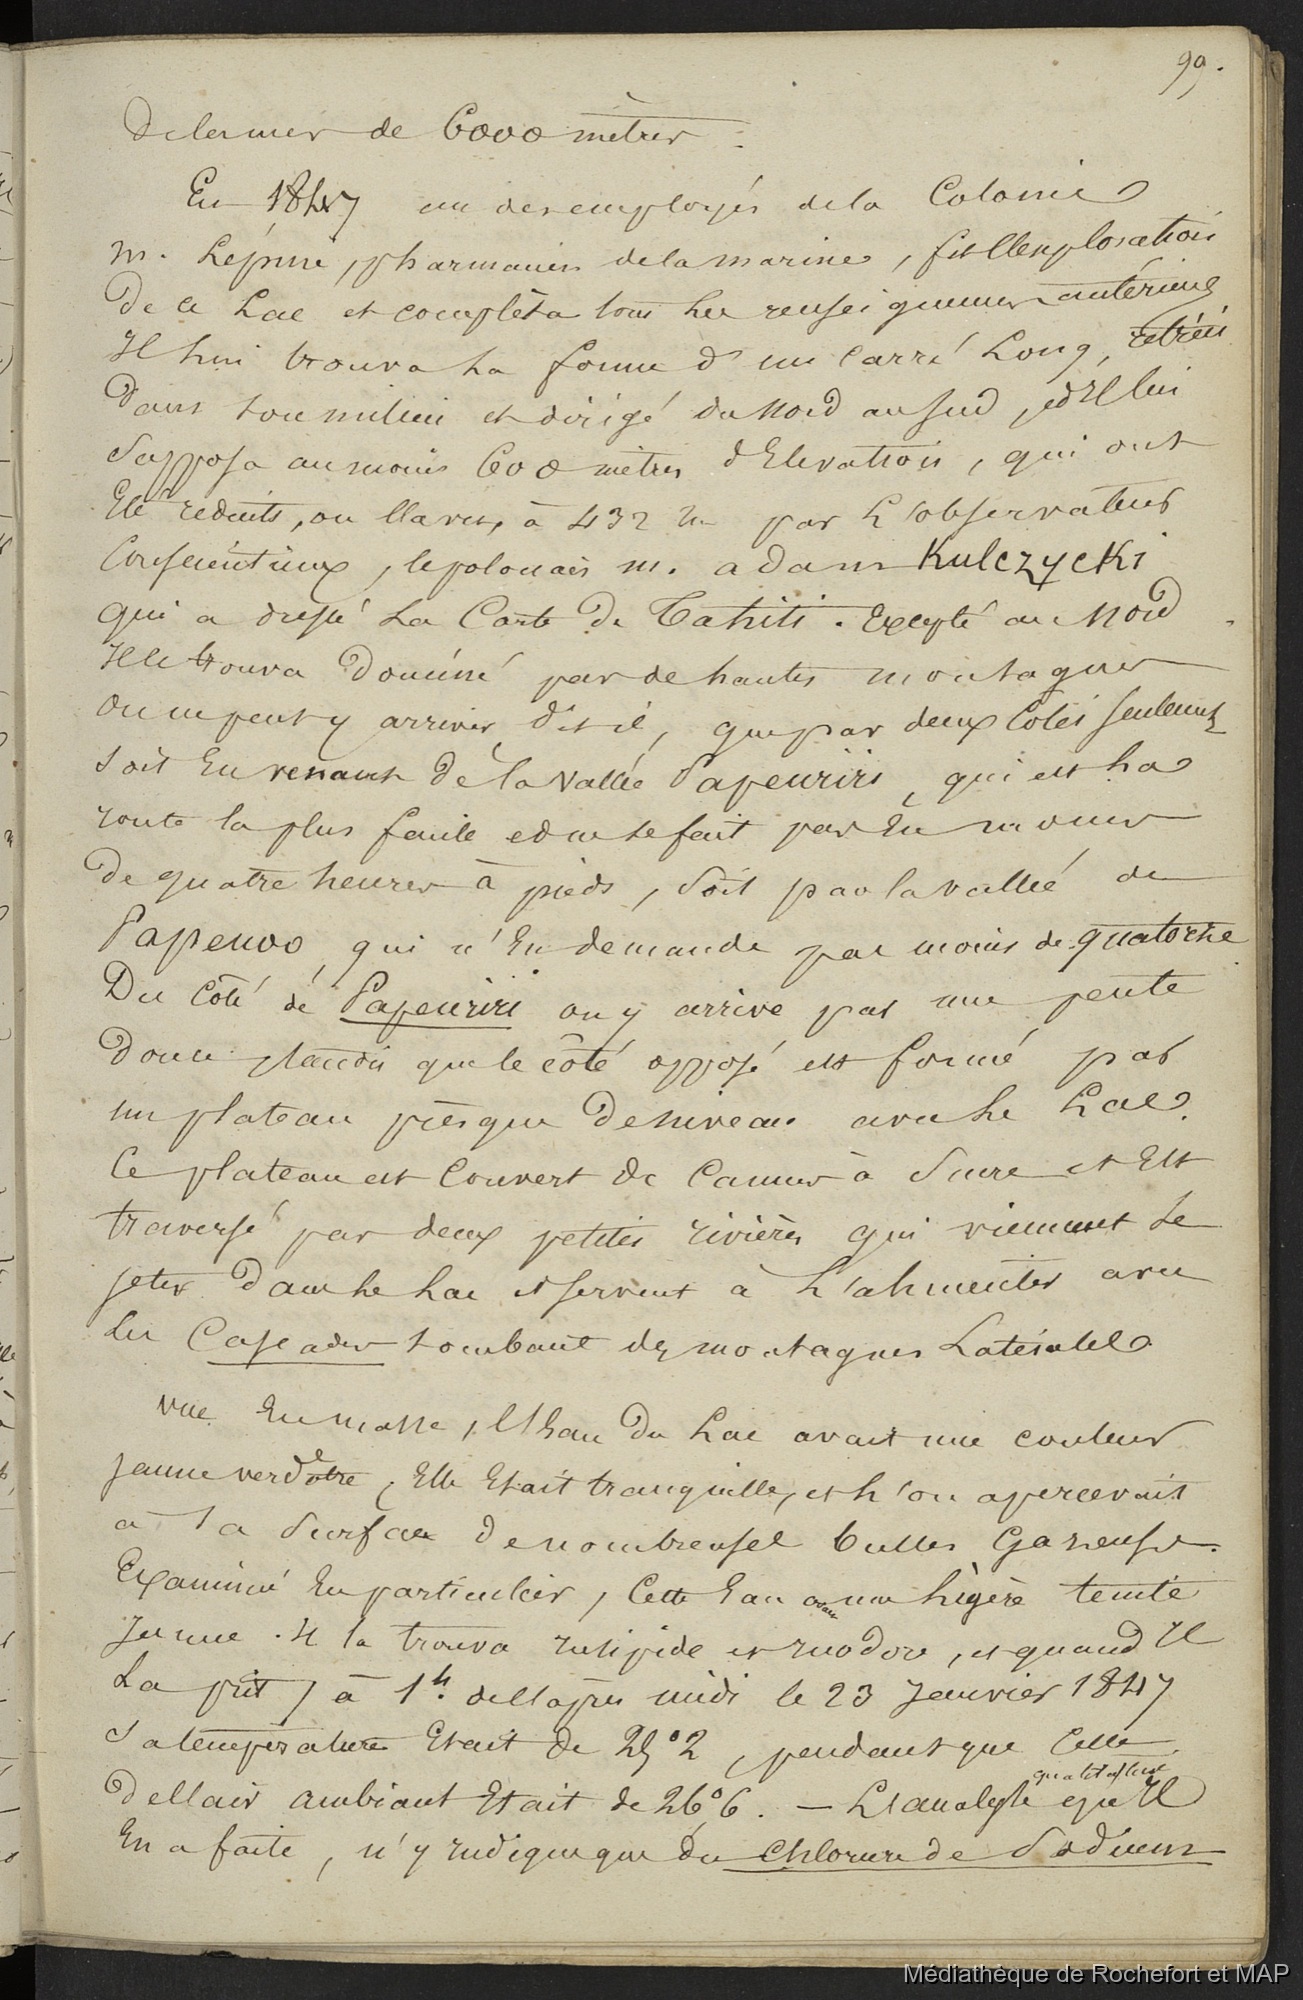 99.
de la mer de 6000 mètres.
En 1847 un des employés de la Colonie
m. Lépine, pharmacien de la marine, fit l'Exploration
De ce Lac et complèta tous les renseignemens antérieurs
Il lui trouva la forme d'un carré Long, rétréci
Dans son milieu et dirigé du Nord au Sud, et Il lui
Supposa au moins 600 mètres d'Elevation, qui ont
Eté réduits, ou llaver, à 432 m par L'observateur
Consciéntieux, le polonais m. adam Kulczycki
qui a dressé La Carte De Tahiti. Excepté au Nord
Il le trouva Dominé par de hautes montagnes
on ne peut y arriver dit-il, que par deux Cotés seulement
soit En venant de la Vallée Papeuriri, qui est La
route la plus facile et ne se fait pas En moins
De quatre heures à pieds, Soit par la vallée de
Papenoo qui n'En demande pas moins de quatorze
Du Côté de Papeuriri on y arrive par une pente
Douce, tandis que le côté opposé est formé par
un plateau presque De niveau avec Le Lac.
Ce plateau est Couvert de Cannes à Sucre et Est
traversé par deux petites rivières qui viennent se
jeter Dans Le Lac et servent à L'alimenter avec
Les Cascades tombant des montagnes Latérales
vue En masse, l'Eau Du Lac avait une couleur
jaune verdâtre, Elle Etait tranquille, et L'on apercevait
à sa Surface De nombreuses bulles Gazeuses.
Examiné En particulier, Cette Eau avait une Légère teinte
Jaune. Il la trouva Insipide et Inodore, et quand Il
La prit, à 1h. de l'après midi le 23 Janvier 1847
Sa température Etait de 25°2, pendant que Celle
De l'air ambiant Etait de 26°6. — L'analyse qualitative qu'Il
En a faite, n'y Indique que du Chlorure de Sodium
Médiathèque de Rochefort et MAP